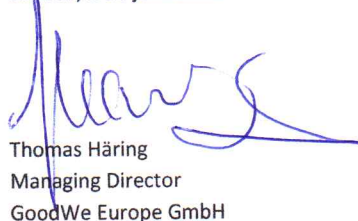 Thomas Häring
Managing Director
GoodWe Europe GmbH